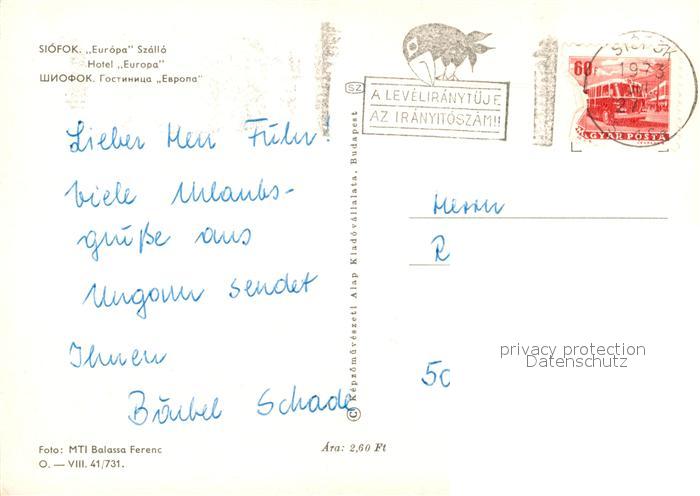 SIÓFOK. „Európa" Szálló
Hotel „Europa"
ШИОФОК. Гостиница „Европа"
Lieber Herr Führ!
viele Urlaubs-
grüße aus
Ungarn sendet
Ihnen
Bärbel Schade
Foto: MTI Balassa Ferenc
O. — VIII. 41/731.
Ára: 2,60 Ft
SZ
© Képzőművészeti Alap Kiadóvállalata, Budapest
A LEVÉL IRÁNYTŰJE
AZ IRÁNYÍTÓSZÁM!!
60f
MAGYAR POSTA
SIÓFOK
1973
Herrn
R
50
privacy protection
Datenschutz